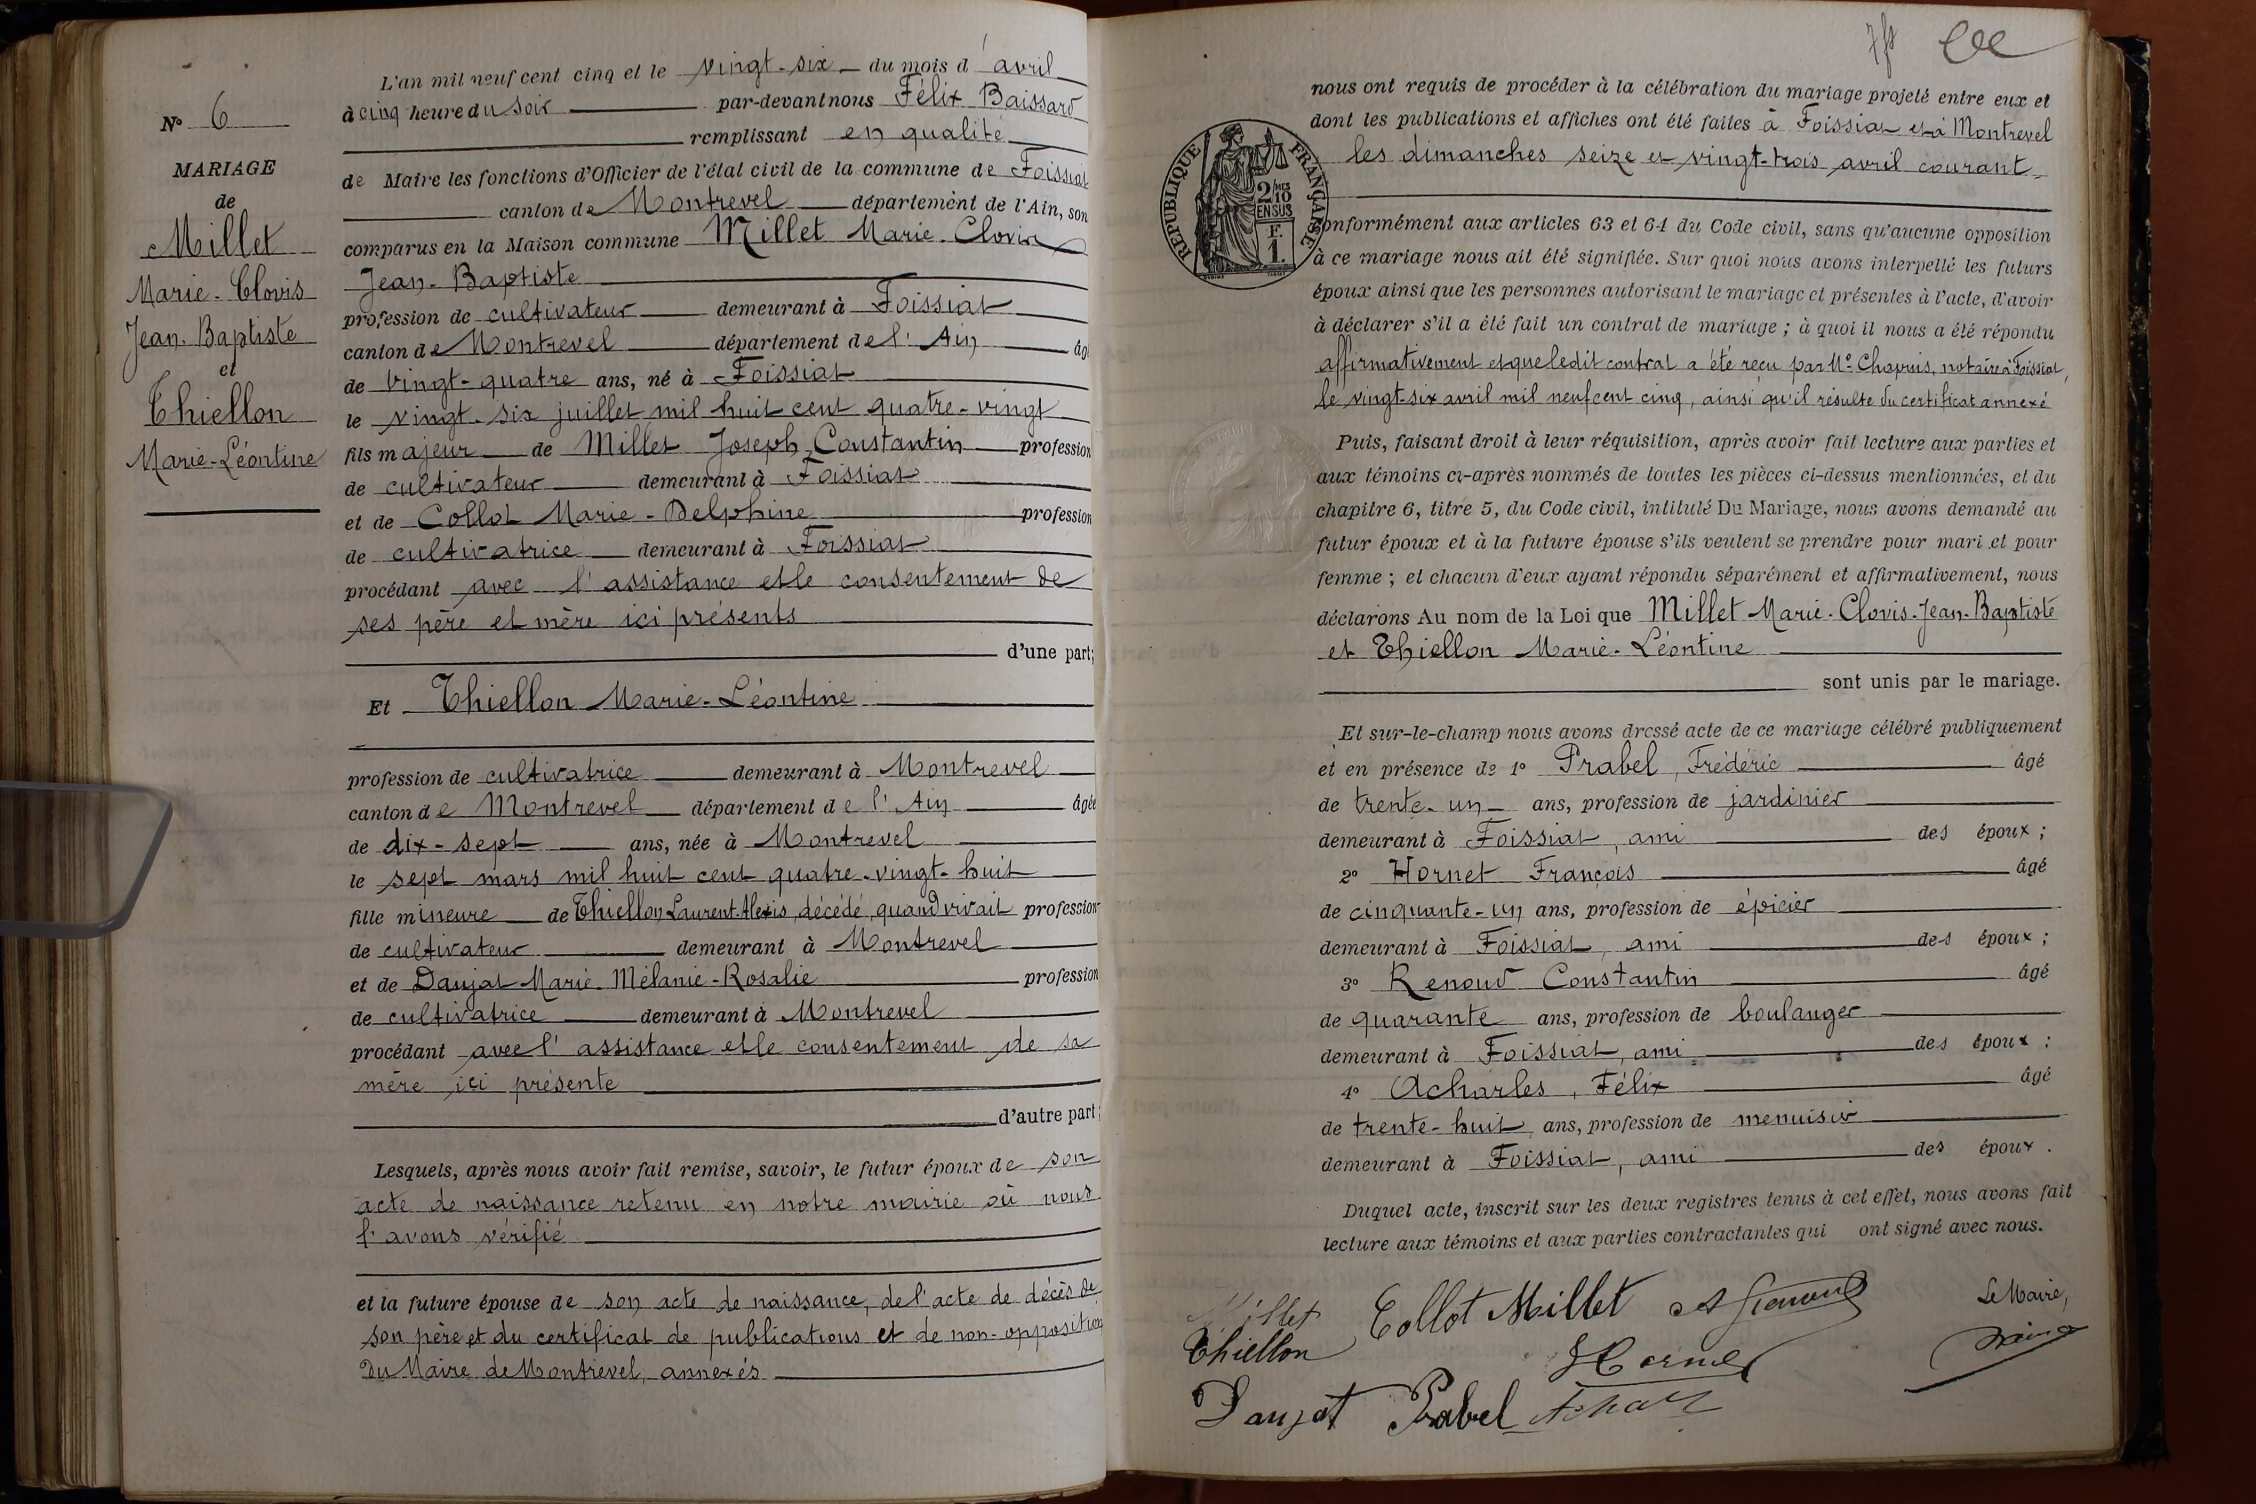 N° 6
MARIAGE
de
Millet
Marie-Clovis
Jean-Baptiste
et
Thiellon
Marie-Léontine
L'an mil neuf cent cinq et le vingt-six du mois d'avril
à cinq heure du soir par-devant nous Félix Baissard
remplissant en qualité
de Maire les fonctions d'Officier de l'état civil de la commune de Foissiat
canton de Montrevel département de l'Ain, son
comparus en la Maison commune Millet Marie-Clovis
Jean-Baptiste
profession de cultivateur demeurant à Foissiat
canton de Montrevel département de l'Ain âg
de vingt-quatre ans, né à Foissiat
le vingt-six juillet mil huit cent quatre-vingt
fils majeur de Millet Joseph Constantin profession
de cultivateur demeurant à Foissiat
et de Collot Marie-Delphine profession
de cultivatrice demeurant à Foissiat
procédant avec l'assistance et le consentement de
ses père et mère ici présents
d'une part;
Et Thiellon Marie-Léontine
profession de cultivatrice demeurant à Montrevel
canton de Montrevel département de l'Ain âgée
de dix-sept ans, née à Montrevel
le sept mars mil huit cent quatre-vingt-huit
fille mineure de Thiellon Laurent-Alexis, décédé, quand vivait profession
de cultivateur demeurant à Montrevel
et de Daujat Marie-Mélanie-Rosalie profession
de cultivatrice demeurant à Montrevel
procédant avec l'assistance et le consentement de sa
mère ici présente
d'autre part;
Lesquels, après nous avoir fait remise, savoir, le futur époux de son
acte de naissance retenu en notre mairie où nous
l'avons vérifié
et la future épouse de son acte de naissance, de l'acte de décès de
son père et du certificat de publications et de non-opposition
du Maire de Montrevel, annexés
nous ont requis de procéder à la célébration du mariage projeté entre eux et
dont les publications et affiches ont été faites à Foissiat et à Montrevel
les dimanches seize et vingt-trois avril courant
RÉPUBLIQUE FRANÇAISE
2/10 MES
EN SUS
F.
1.
onformément aux articles 63 et 64 du Code civil, sans qu'aucune opposition
à ce mariage nous ait été signifiée. Sur quoi nous avons interpellé les futurs
époux ainsi que les personnes autorisant le mariage et présentes à l'acte, d'avoir
à déclarer s'il a été fait un contrat de mariage ; à quoi il nous a été répondu
affirmativement et que ledit contrat a été reçu par Me Chapuis, notaire à Foissiat,
le vingt-six avril mil neuf cent cinq, ainsi qu'il résulte du certificat annexé
Puis, faisant droit à leur réquisition, après avoir fait lecture aux parties et
aux témoins ci-après nommés de toutes les pièces ci-dessus mentionnées, et du
chapitre 6, titre 5, du Code civil, intitulé Du Mariage, nous avons demandé au
futur époux et à la future épouse s'ils veulent se prendre pour mari et pour
femme ; et chacun d'eux ayant répondu séparément et affirmativement, nous
déclarons Au nom de la Loi que Millet Marie-Clovis-Jean-Baptiste
et Thiellon Marie-Léontine
sont unis par le mariage.
Et sur-le-champ nous avons dressé acte de ce mariage célébré publiquement
et en présence de 1° Prabel, Frédéric âgé
de trente-un ans, profession de jardinier
demeurant à Foissiat, ami des époux ;
2° Hornet François âgé
de cinquante-un ans, profession de épicier
demeurant à Foissiat, ami des époux ;
3° Renoud Constantin âgé
de quarante ans, profession de boulanger
demeurant à Foissiat, ami des époux ;
4° Acharles, Félix âgé
de trente-huit ans, profession de menuisier
demeurant à Foissiat, ami des époux.
Duquel acte, inscrit sur les deux registres tenus à cet effet, nous avons fait
lecture aux témoins et aux parties contractantes qui ont signé avec nous.
Millet Collot Millet Le Maire,
Thiellon
Daujat Prabel